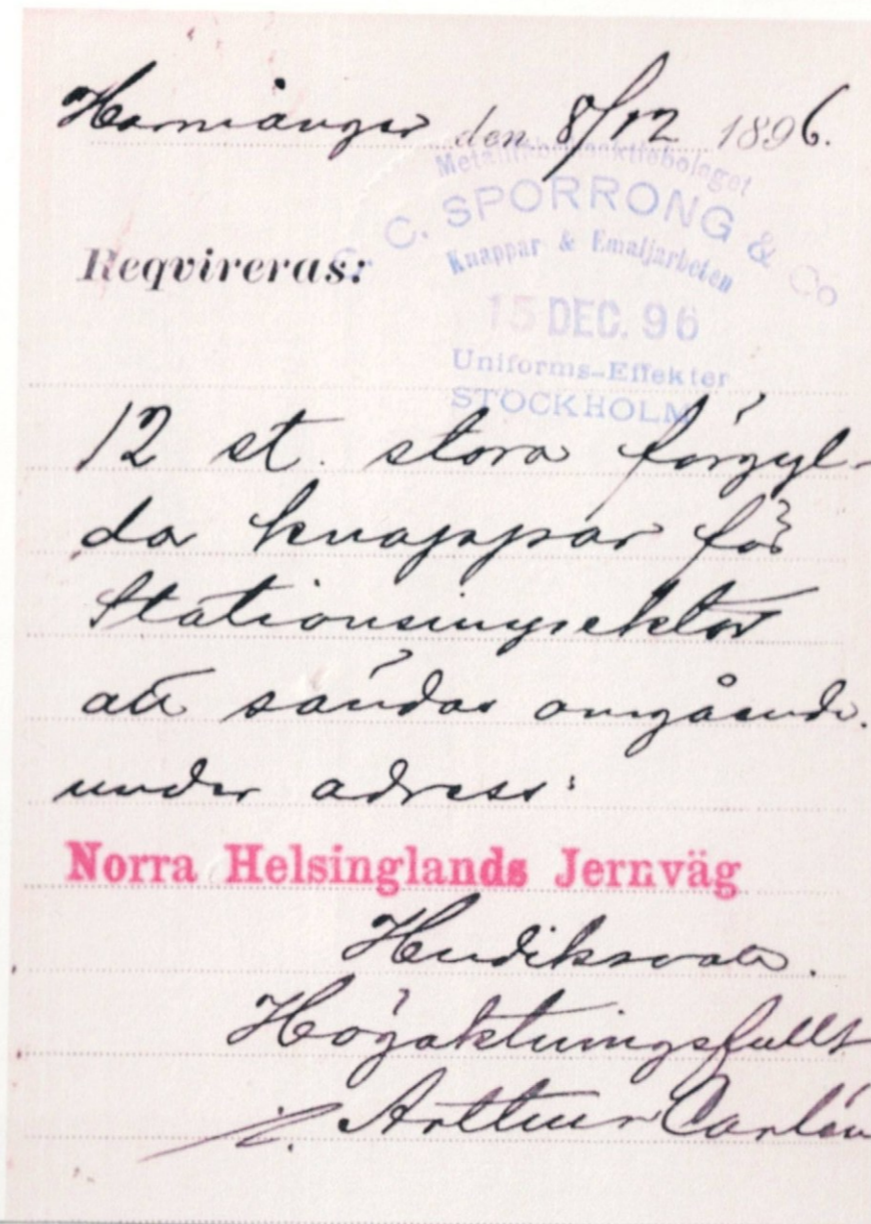 Harmånger den 8/12 1896.
Metallfabriksaktiebolaget
C. C. SPORRONG & Co
Knappar & Emaljarbeten
15 DEC. 96
Uniforms-Effekter
STOCKHOLM
Reqvireras:
12 st. stora förgyl-
da knappar för
Stationsinspektor
att sändas omgående.
under adress:
Norra Helsinglands Jernväg
Hudiksvall.
Högaktningsfullt
Arthur Carlén